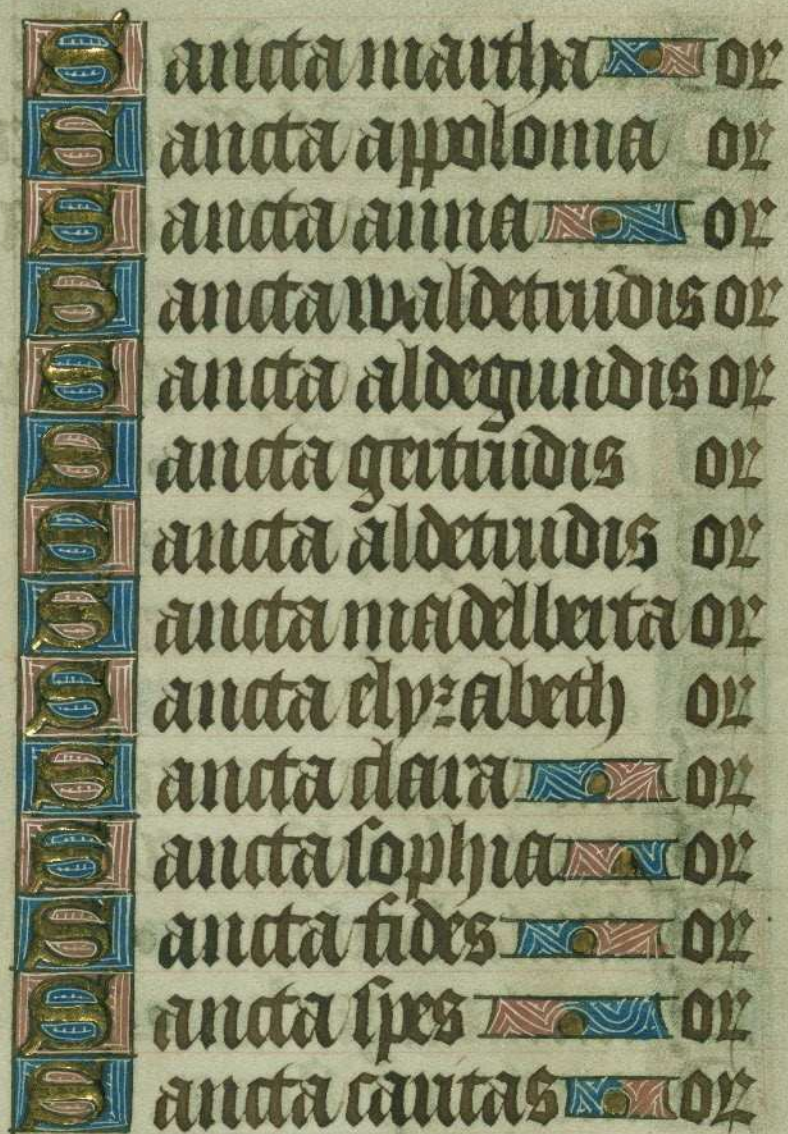 Sancta martha or
Sancta appolonia or
Sancta anna or
Sancta waldetrudis or
Sancta aldegundis or
Sancta gertrudis or
Sancta aldetrudis or
Sancta madelberta or
Sancta elyzabeth or
Sancta clara or
Sancta sophia or
Sancta fides or
Sancta spes or
Sancta caritas or